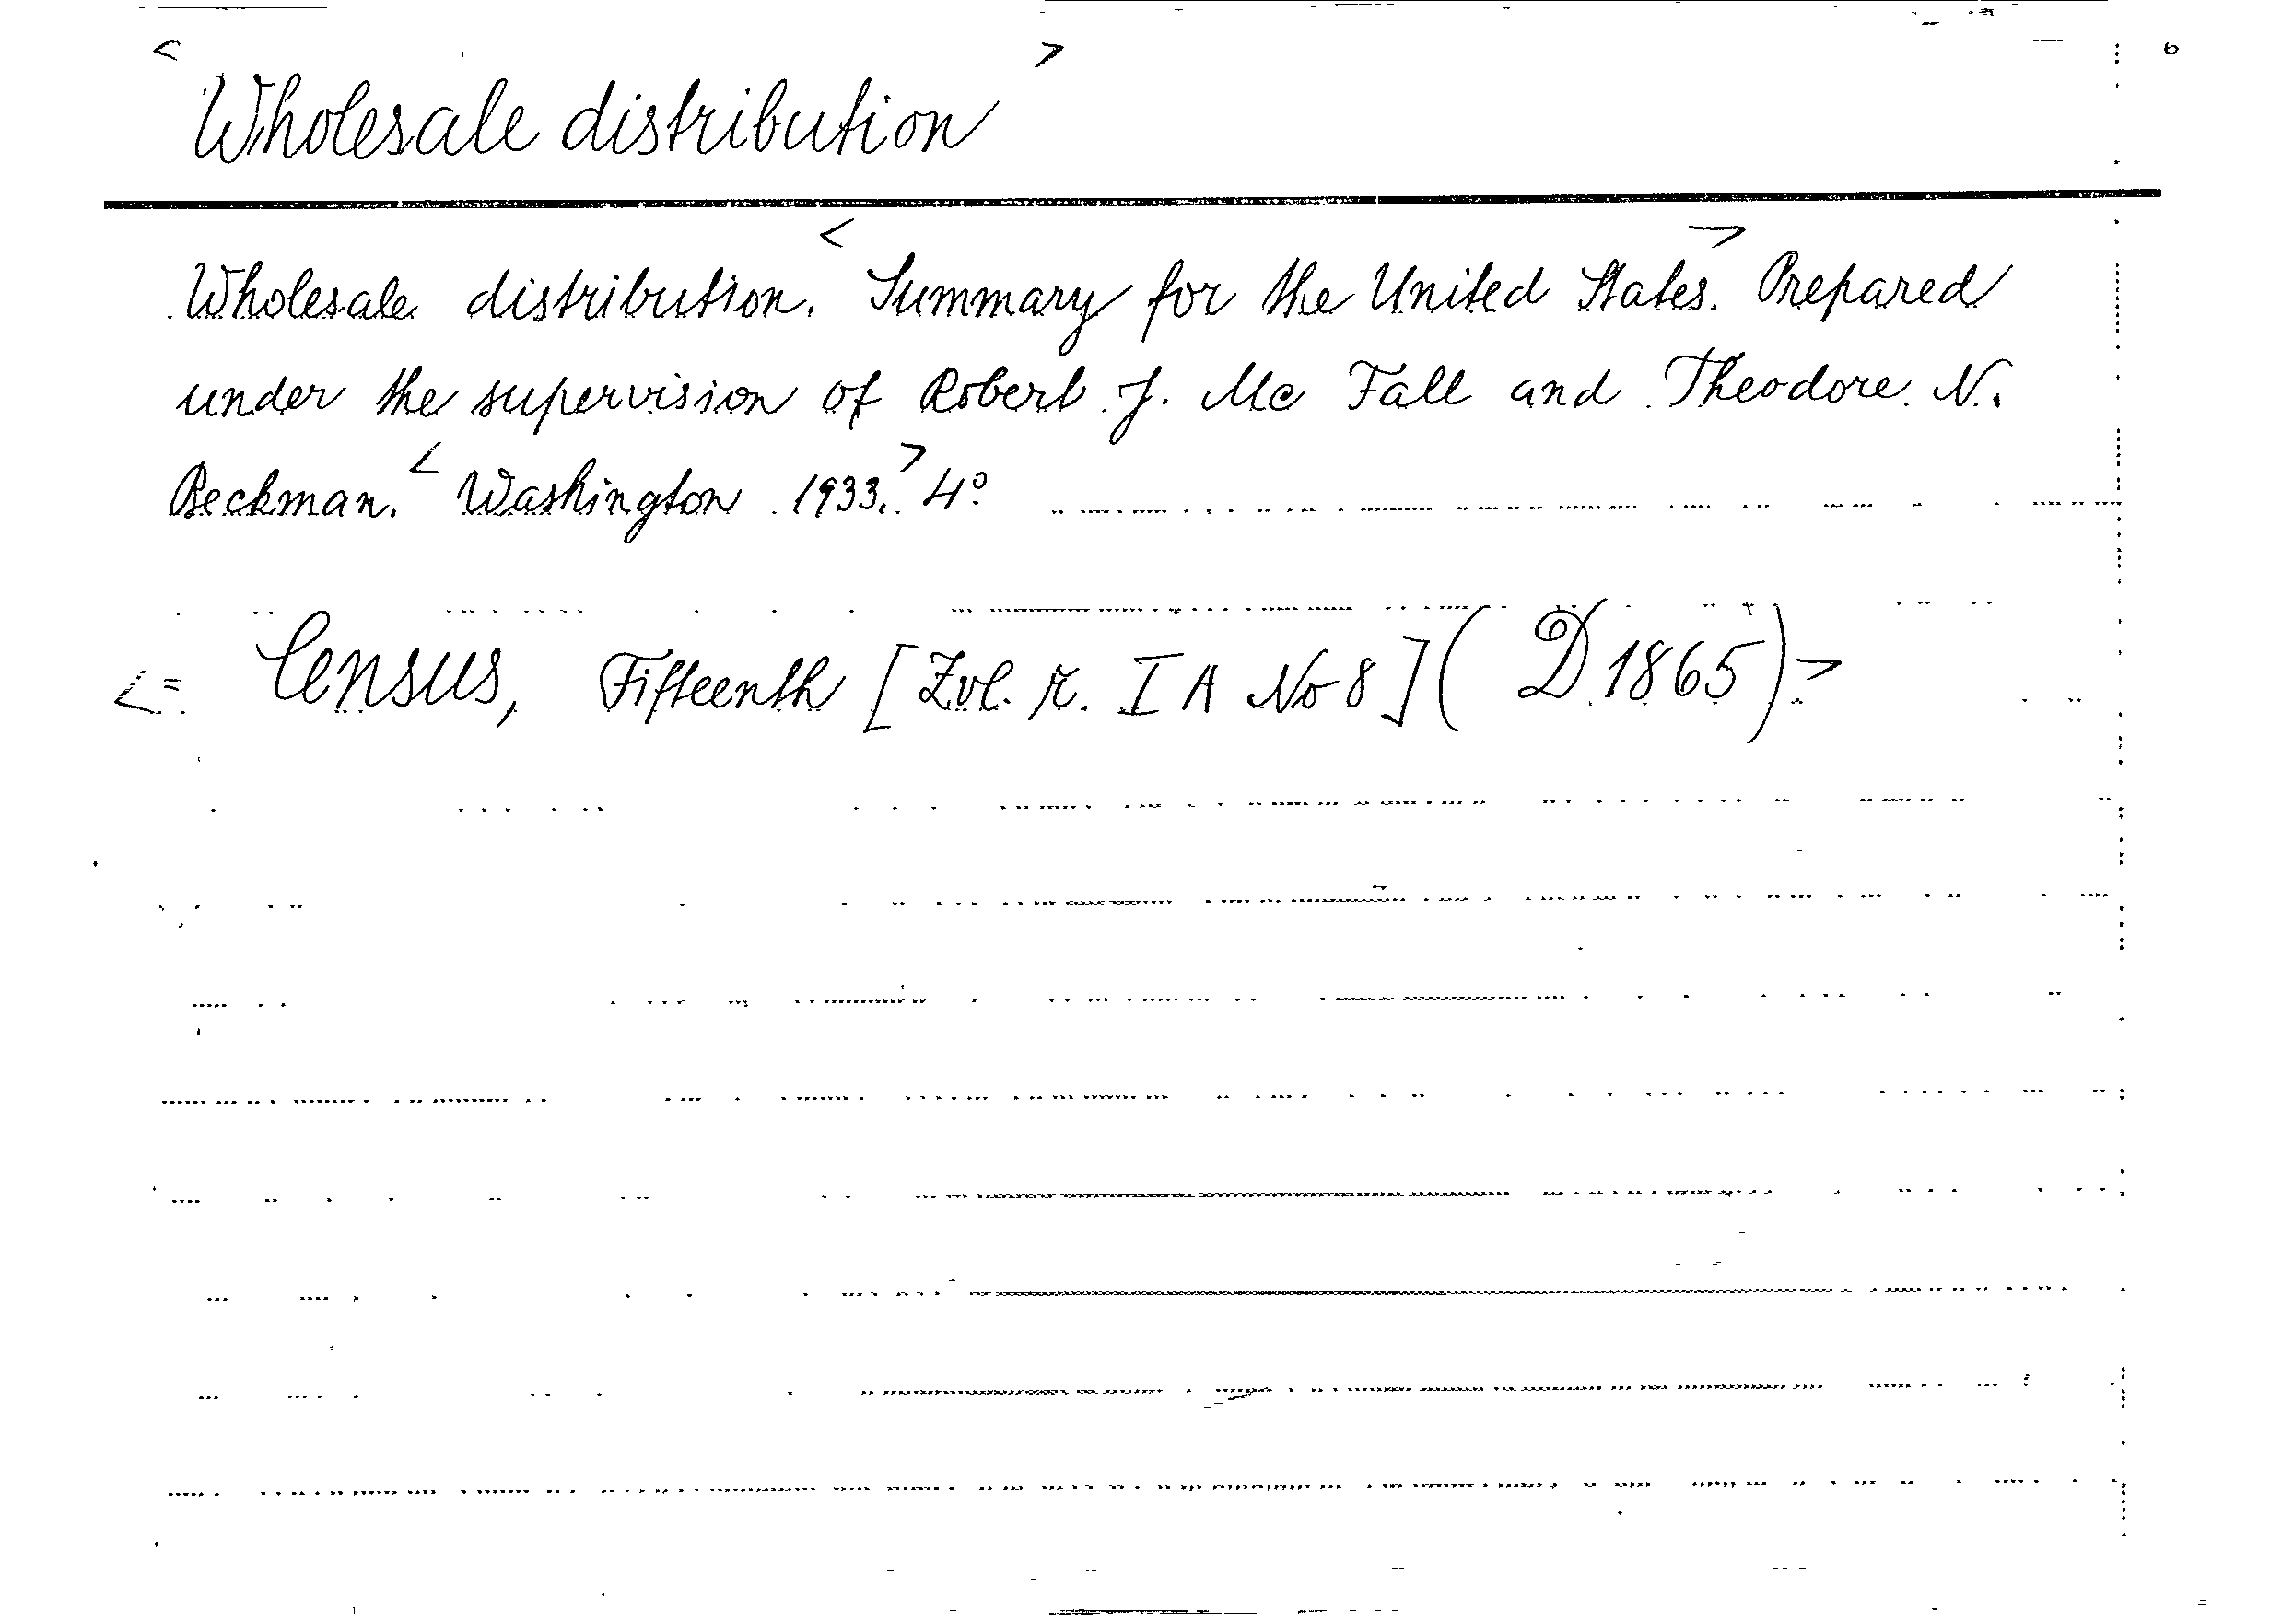 < Wholesale distribution >
Wholesale distribution. < Summary for the United States. > Prepared
under the supervision of Robert J. Mc Fall and Theodore N.
Beckman. < Washington 1933. > 4°
<= Census, Fifteenth [Zvl. ř. I A No 8] ( D 1865) >